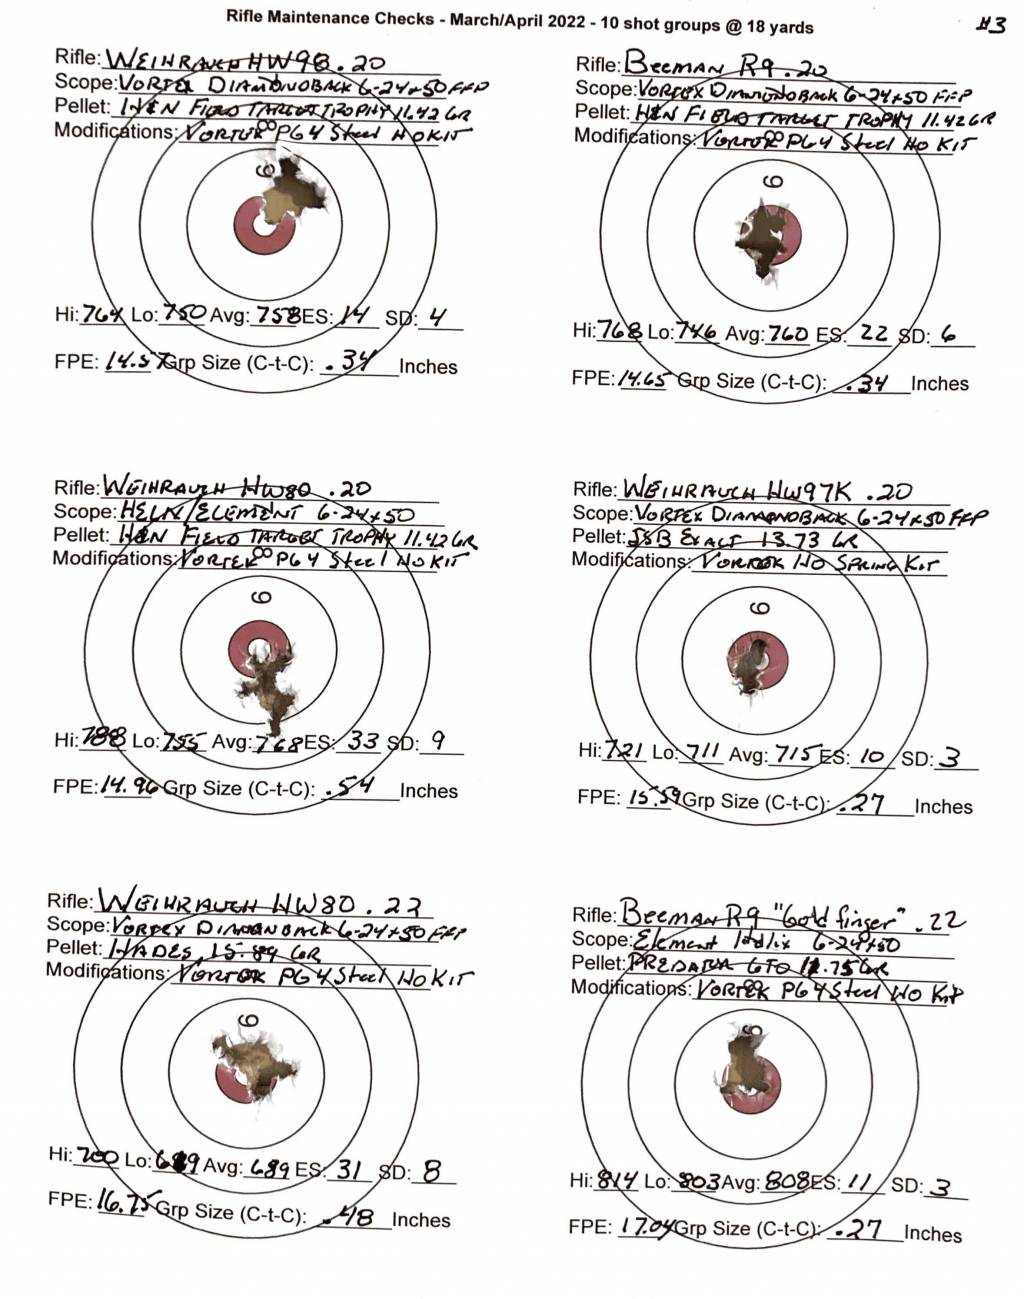 Rifle Maintenance Checks - March/April 2022 - 10 shot groups @ 18 yards
#3
Rifle: WEIHRAUCH HW98 .20
Scope: VORTEX DIAMONDBACK 6-24x50 FFP
Pellet: H&N FIELD TARGET TROPHY 11.42 GR
Modifications: VORTEK PG4 Steel HO KIT
6
Hi: 764 Lo: 750 Avg: 758 ES: 14 SD: 4
FPE: 14.57 Grp Size (C-t-C): .34 Inches
Rifle: Beeman R9 .20
Scope: VORTEX DIAMONDBACK 6-24x50 FFP
Pellet: H&N FIELD TARGET TROPHY 11.42 GR
Modifications: VORTEK PG4 Steel HO KIT
6
Hi: 768 Lo: 746 Avg: 760 ES: 22 SD: 6
FPE: 14.65 Grp Size (C-t-C): .34 Inches
Rifle: WEIHRAUCH HW80 .20
Scope: HELIX/ELEMENT 6-24x50
Pellet: H&N FIELD TARGET TROPHY 11.42 GR
Modifications: VORTEK PG4 Steel HO KIT
6
Hi: 788 Lo: 755 Avg: 768 ES: 33 SD: 9
FPE: 14.96 Grp Size (C-t-C): .54 Inches
Rifle: WEIHRAUCH HW97K .20
Scope: VORTEX DIAMONDBACK 6-24x50 FFP
Pellet: JSB EXACT 13.73 GR
Modifications: VORTEK HO SPRING KIT
6
Hi: 721 Lo: 711 Avg: 715 ES: 10 SD: 3
FPE: 15.59 Grp Size (C-t-C): .27 Inches
Rifle: WEIHRAUCH HW80 .22
Scope: VORTEX DIAMONDBACK 6-24x50 FFP
Pellet: HADES 15.89 GR
Modifications: VORTEK PG4 Steel HO KIT
6
Hi: 700 Lo: Avg: 689 ES: 31 SD: 8
FPE: 16.75 Grp Size (C-t-C): .48 Inches
Rifle: Beeman R9 "Gold finger" .22
Scope: Element Helix 6-24x50
Pellet: PREDATOR GTO 11.75 GR
Modifications: VORTEK PG4 Steel HO Kit
6
Hi: 814 Lo: 803 Avg: 808 ES: 11 SD: 3
FPE: 17.04 Grp Size (C-t-C): .27 Inches